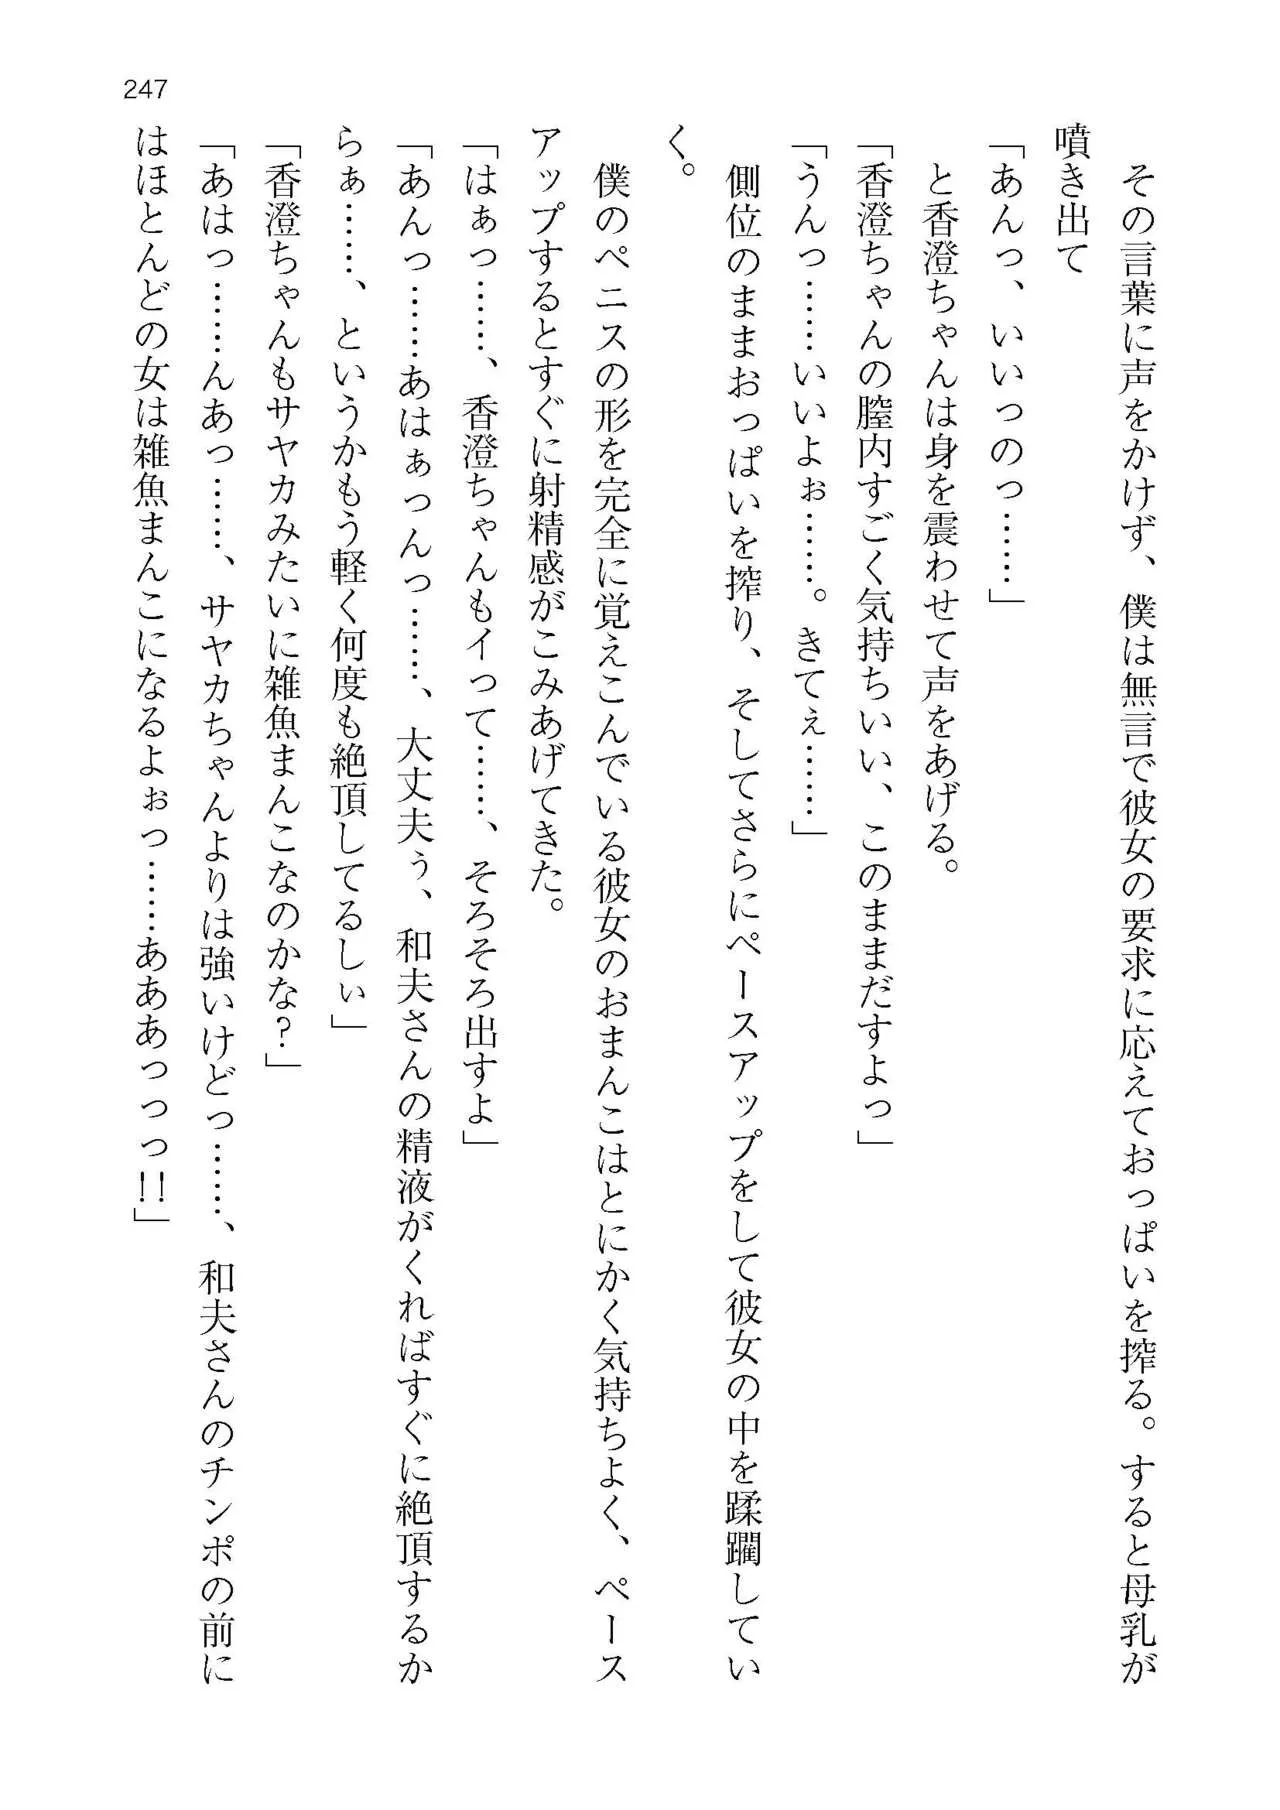 247
　その言葉に声をかけず、僕は無言で彼女の要求に応えておっぱいを搾る。すると母乳が
噴き出て
「あんっ、いいっのっ……」
　と香澄ちゃんは身を震わせて声をあげる。
「香澄ちゃんの膣内すごく気持ちいい、このままだすよっ」
「うんっ……いいよぉ……。きてぇ……」
　側位のままおっぱいを搾り、そしてさらにペースアップをして彼女の中を蹂躙してい
く。
　僕のペニスの形を完全に覚えこんでいる彼女のおまんこはとにかく気持ちよく、ペース
アップするとすぐに射精感がこみあげてきた。
「はぁっ……、香澄ちゃんもイって……、そろそろ出すよ」
「あんっ……あはぁっんっ……、大丈夫ぅ、和夫さんの精液がくればすぐに絶頂するか
らぁ……、というかもう軽く何度も絶頂してるしぃ」
「香澄ちゃんもサヤカみたいに雑魚まんこなのかな？」
「あはっ……んあっ……、サヤカちゃんよりは強いけどっ……、和夫さんのチンポの前に
はほとんどの女は雑魚まんこになるよぉっ……あああっっっ!!」